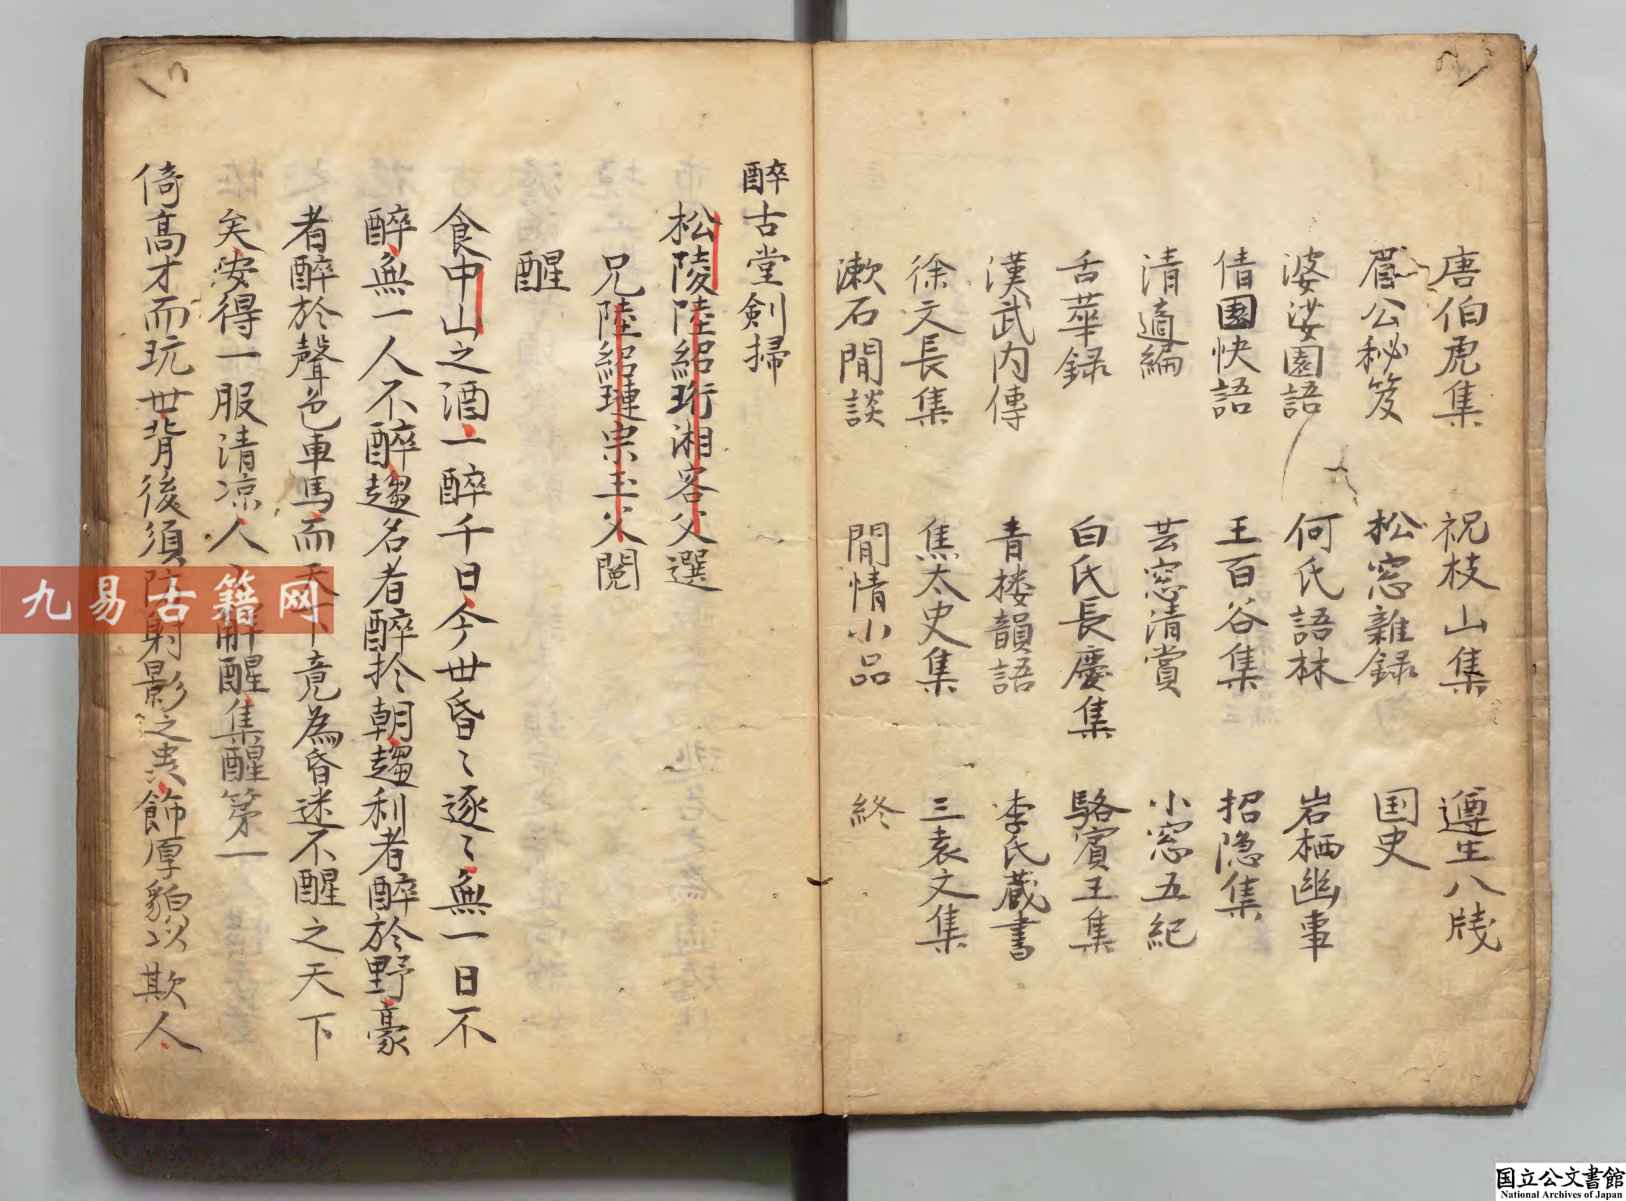 唐伯虎集 祝枝山集 遵生八牋
眉公秘笈 松窓雜録 国史
婆娑園語 何氏語林 岩栖幽事
倩園快語 王百谷集 招隐集
清適編 芸窓清賞 小窓五紀
舌華録 白氏長慶集 駱賓王集
漢武内傳 青楼韻語 李氏蔵書
徐文長集 焦太史集 三袁文集
漱石閒談 閒情小品 終
醉古堂劍掃
松陵陸紹珩湘客父選
兄陸紹璉宗玉父閲
醒
食中山之酒一醉千日今世昏〻逐〻無一日不
醉無一人不醉趨名者醉於朝趨利者醉於野豪
者醉於聲色車馬而天下竟為昏迷不醒之天下
矣安得一服清凉人人解醒集醒第一
倚高才而玩世背後須防射影之虫飾厚貌以欺人
九易古籍网
国立公文書館
National Archives of Japan